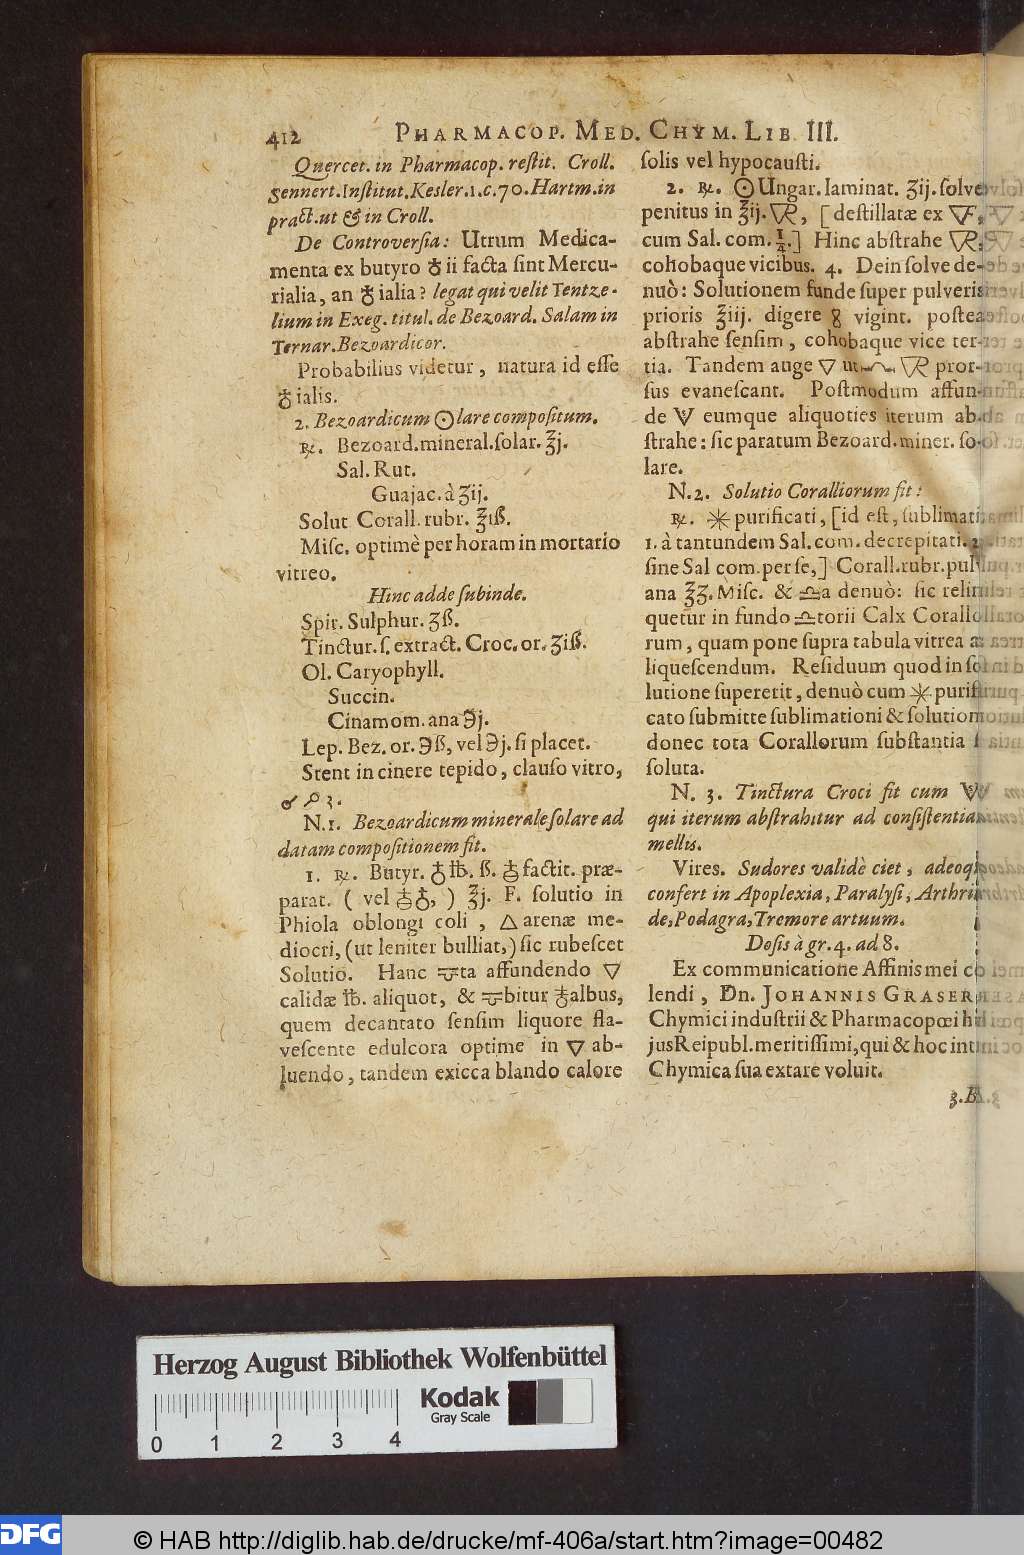 412 PHARMACOP. MED. CHYM. LIB. III.
Quercet. in Pharmacop. reſtit. Croll.
Sennert. Inſtitut. Kesler. 1. c. 70. Hartm. in
pract. ut & in Croll.
De Controverſia: Utrum Medica-
menta ex butyro ♁ ii facta ſint Mercu-
rialia, an ♁ ialia? legat qui velit Tentze-
lium in Exeg. titul. de Bezoard. Salam in
Ternar. Bezoardicor.
Probabilius videtur, natura id eſſe
♁ ialis.
2. Bezoardicum ☉lare compoſitum.
℞. Bezoard. mineral. ſolar. ℥j.
Sal. Rut.
Guajac. à ʒij.
Solut Corall. rubr. ℥iß.
Miſc. optimè per horam in mortario
vitreo.
Hinc adde ſubinde.
Spir. Sulphur. ʒß.
Tinctur. ſ. extract. Croc. or. ʒiß.
Ol. Caryophyll.
Succin.
Cinamom. ana ℈j.
Lep. Bez. or. ℈ß, vel ℈j. ſi placet.
Stent in cinere tepido, clauſo vitro,
3.
N. 1. Bezoardicum minerale ſolare ad
datam compoſitionem fit.
1. ℞. Butyr. ♁ ℔. ß. factit. præ-
parat. (vel ♁, ) ℥j. F. ſolutio in
Phiola oblongi coli, △ arenæ me-
diocri, (ut leniter bulliat,) ſic rubeſcet
Solutio. Hanc ta affundendo ▽
calidæ ℔. aliquot, & bitur ♁albus,
quem decantato ſenſim liquore fla-
veſcente edulcora optime in ▽ ab-
luendo, tandem exicca blando calore
ſolis vel hypocauſti.
2. ℞. ☉ Ungar. laminat. ʒij. ſolve
penitus in ℥ij. ▽R, [deſtillatæ ex ▽F,
cum Sal. com. ¼.] Hinc abſtrahe ▽R,
cohobaque vicibus. 4. Dein ſolve de-
nuò: Solutionem funde ſuper pulveris
prioris ℥iij. digere vigint. poſtea
abſtrahe ſenſim, cohobaque vice ter-
tia. Tandem auge ▽ ut ▽R pror-
ſus evaneſcant. Poſtmodum affun-
de eumque aliquoties iterum ab-
ſtrahe: ſic paratum Bezoard. miner. ſo-
lare.
N. 2. Solutio Coralliorum fit:
℞. ✳ purificati, [id eſt, ſublimati
1. à tantundem Sal. com. decrepitati. 2.
ſine Sal com. per ſe,] Corall. rubr. pul
ana ℥ʒ. Miſc. & ♎a denuò: ſic relin
quetur in fundo ♎torii Calx Corallo
rum, quam pone ſupra tabula vitrea
liqueſcendum. Reſiduum quod in ſo
lutione ſuperetit, denuò cum ✳ purifi
cato ſubmitte ſublimationi & ſolution
donec tota Corallorum ſubſtantia
ſoluta.
N. 3. Tinctura Croci fit cum
qui iterum abſtrahitur ad conſiſtentiam
mellis.
Vires. Sudores validè ciet, adeoq
confert in Apoplexia, Paralyſi, Arthri
de, Podagra, Tremore artuum.
Doſis à gr. 4. ad 8.
Ex communicatione Affinis mei co
lendi, Dn. JOHANNIS GRASER
Chymici induſtrii & Pharmacopœi hu
jus Reipubl. meritiſſimi, qui & hoc int
Chymica ſua extare voluit.
3. B
Herzog August Bibliothek Wolfenbüttel
Kodak
Gray Scale
0 1 2 3 4
DFG
© HAB http://diglib.hab.de/drucke/mf-406a/start.htm?image=00482